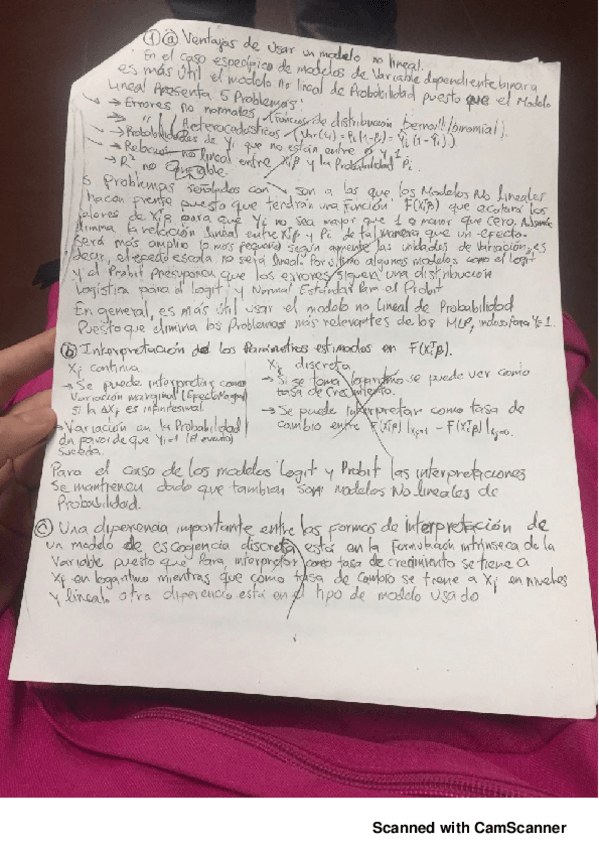 ① ⓐ Ventajas de usar un modelo no lineal.
En el caso específico de modelos de Variable dependiente binara
es más útil el modelo no lineal de Probabilidad puesto que el Modelo
Lineal Apresenta 5 Problemas:
→ Errores no normales (Función de distribución Bernoulli/binomial).
→ " " Heterocedásticos (Var(Ui) = Pi(1-Pi) = Yi(1-Yi)).
→ Probabilidades de Yi que no están entre 0 y 1
→ Relación no lineal entre Xiβ y la Probabilidad Pi.
→ R² no
5 Problemas señalados con son a los que los Modelos No lineales
hacen frente puesto que tendrán una Función F(Xiβ) que acotará los
valores de Xiβ para que Yi no sea mayor que 1 o menor que cero. Además
elimina la relación lineal entre Xiβ y Pi de tal manera que un efecto
será más amplio o más pequeño según aumente las unidades de variación, es
decir, el efecto escala no será lineal. Por último algunos modelos como el logit
y el Probit Presuponen que los errores siguen una distribución
Logística para el logit y Normal Estándar Para el Probit
En general, es más útil usar el modelo no Lineal de Probabilidad
Puesto que elimina los Problemas más relevantes de los MLP,
ⓑ Interpretación de los Parámetros estimados en F(Xiβ).
Xj continua Xj discreta
→ Se puede interpretar como → Si se toma logaritmo se puede ver como
Variación marginal (Efecto Marg) tasa de crecimiento.
si la ΔXj es infinitesimal. → Se puede Interpretar como tasa de
→ Variación en la Probabilidad cambio entre F(Xiβ)|xj=1 - F(Xiβ)|xj=0.
en favor de que Yi=1 (el evento)
suceda.
Para el caso de los modelos Logit y Probit las interpretaciones
se mantienen dado que tambien son modelos No lineales de
Probabilidad.
Una diferencia importante entre las formas de Interpretación de
un modelo de escogencia discreta está en la Formulación intrínseca de la
Variable puesto que Para interpretar como tasa de crecimiento se tiene a
Xj en logaritmo mientras que como tasa de cambio se tiene a Xj en niveles
y lineal. otra diferencia está en el tipo de modelo usado
Scanned with CamScanner